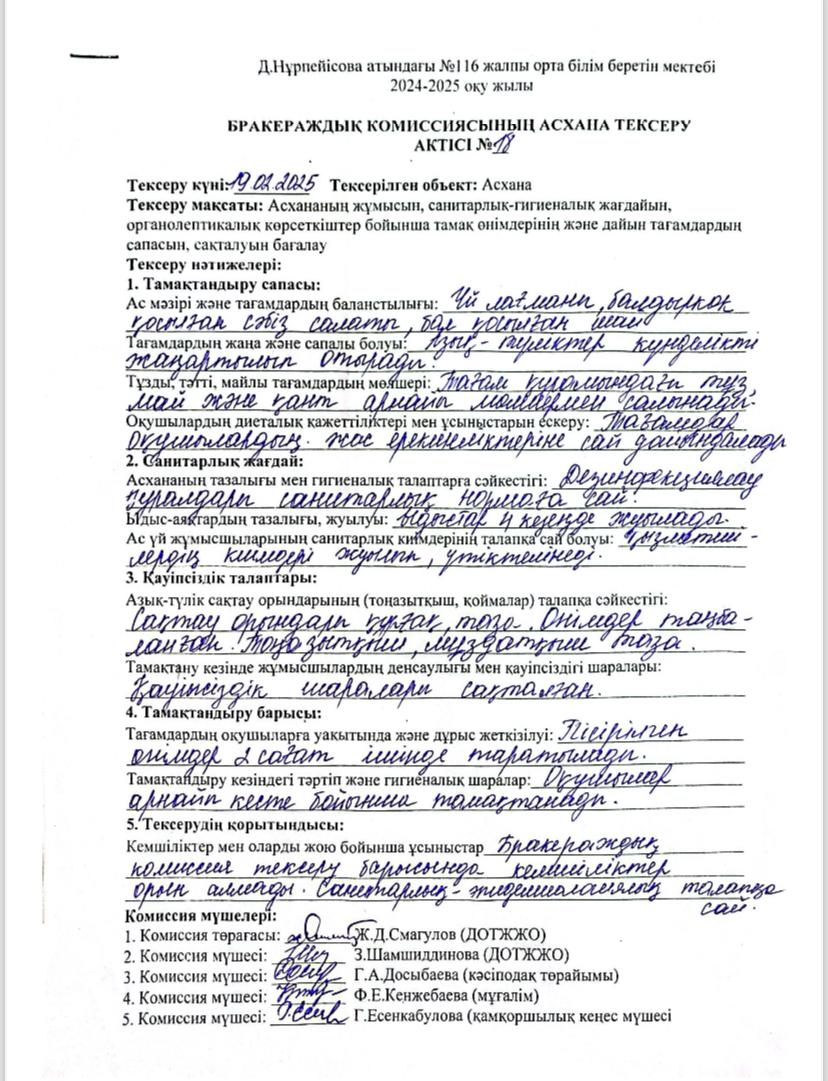 Д.Нұрпейісова атындағы №116 жалпы орта білім беретін мектебі
2024-2025 оқу жылы
БРАКЕРАЖДЫҚ КОМИССИЯСЫНЫҢ АСХАНА ТЕКСЕРУ
АКТІСІ № 18
Тексеру күні: 19.02.2025 Тексерілген объект: Асхана
Тексеру мақсаты: Асхананың жұмысын, санитарлық-гигиеналық жағдайын,
органолептикалық көрсеткіштер бойынша тамақ өнімдерінің және дайын тағамдардың
сапасын, сақталуын бағалау
Тексеру нәтижелері:
1. Тамақтандыру сапасы:
Ас мәзірі және тағамдардың баланстылығы: Үй лағманы, балдыркөк
қосылған сәбіз салаты, бал қосылған шай
Тағамдардың жаңа және сапалы болуы: Азық-түліктер күнделікті
жаңартылып отырады.
Тұзды, тәтті, майлы тағамдардың мөлшері: Тағам құрамындағы тұз,
май және қант арнайы мөлшермен салынады.
Оқушылардың диеталық қажеттіліктері мен ұсыныстарын ескеру: Тағамдар
оқушылардың жас ерекшеліктеріне сай дайындалады
2. Санитарлық жағдай:
Асхананың тазалығы мен гигиеналық талаптарға сәйкестігі: Дезинфекциялау
құралдары санитарлық нормаға сай.
Ыдыс-аяқтардың тазалығы, жуылуы: ыдыстар 4 кезеңде жуылады.
Ас үй жұмысшыларының санитарлық киімдерінің талапқа сай болуы: қызметші-
лердің киімдері жуылып, үтіктелінеді.
3. Қауіпсіздік талаптары:
Азық-түлік сақтау орындарының (тоңазытқыш, қоймалар) талапқа сәйкестігі:
Сақтау орындары құрғақ, таза. Өнімдер таңба-
ланған. Тоңазытқыш, мұздатқыш таза.
Тамақтану кезінде жұмысшылардың денсаулығы мен қауіпсіздігі шаралары:
Қауіпсіздік шаралары сақталған.
4. Тамақтандыру барысы:
Тағамдардың оқушыларға уақытында және дұрыс жеткізілуі: Пісірілген
өнімдер 2 сағат ішінде таратылады.
Тамақтандыру кезіндегі тәртіп және гигиеналық шаралар: Оқушылар
арнайы кесте бойынша тамақтанады.
5. Тексерудің қорытындысы:
Кемшіліктер мен оларды жою бойынша ұсыныстар Бракераждық
комиссия тексеру барысында кемшіліктер
орын алмады. Санитарлық-эпидемиологиялық талапқа
сай.
Комиссия мүшелері:
1. Комиссия төрағасы: Ж.Д.Смагулов (ДОТЖЖО)
2. Комиссия мүшесі: З.Шамшиддинова (ДОТЖЖО)
3. Комиссия мүшесі: Г.А.Досыбаева (кәсіподақ төрайымы)
4. Комиссия мүшесі: Ф.Е.Кенжебаева (мұғалім)
5. Комиссия мүшесі: Г.Есенкабулова (қамқоршылық кеңес мүшесі